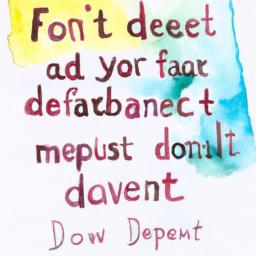 Fon't deeet
ad yor faar
defarbanect
mepust don:lt
davent
Dow Depemt